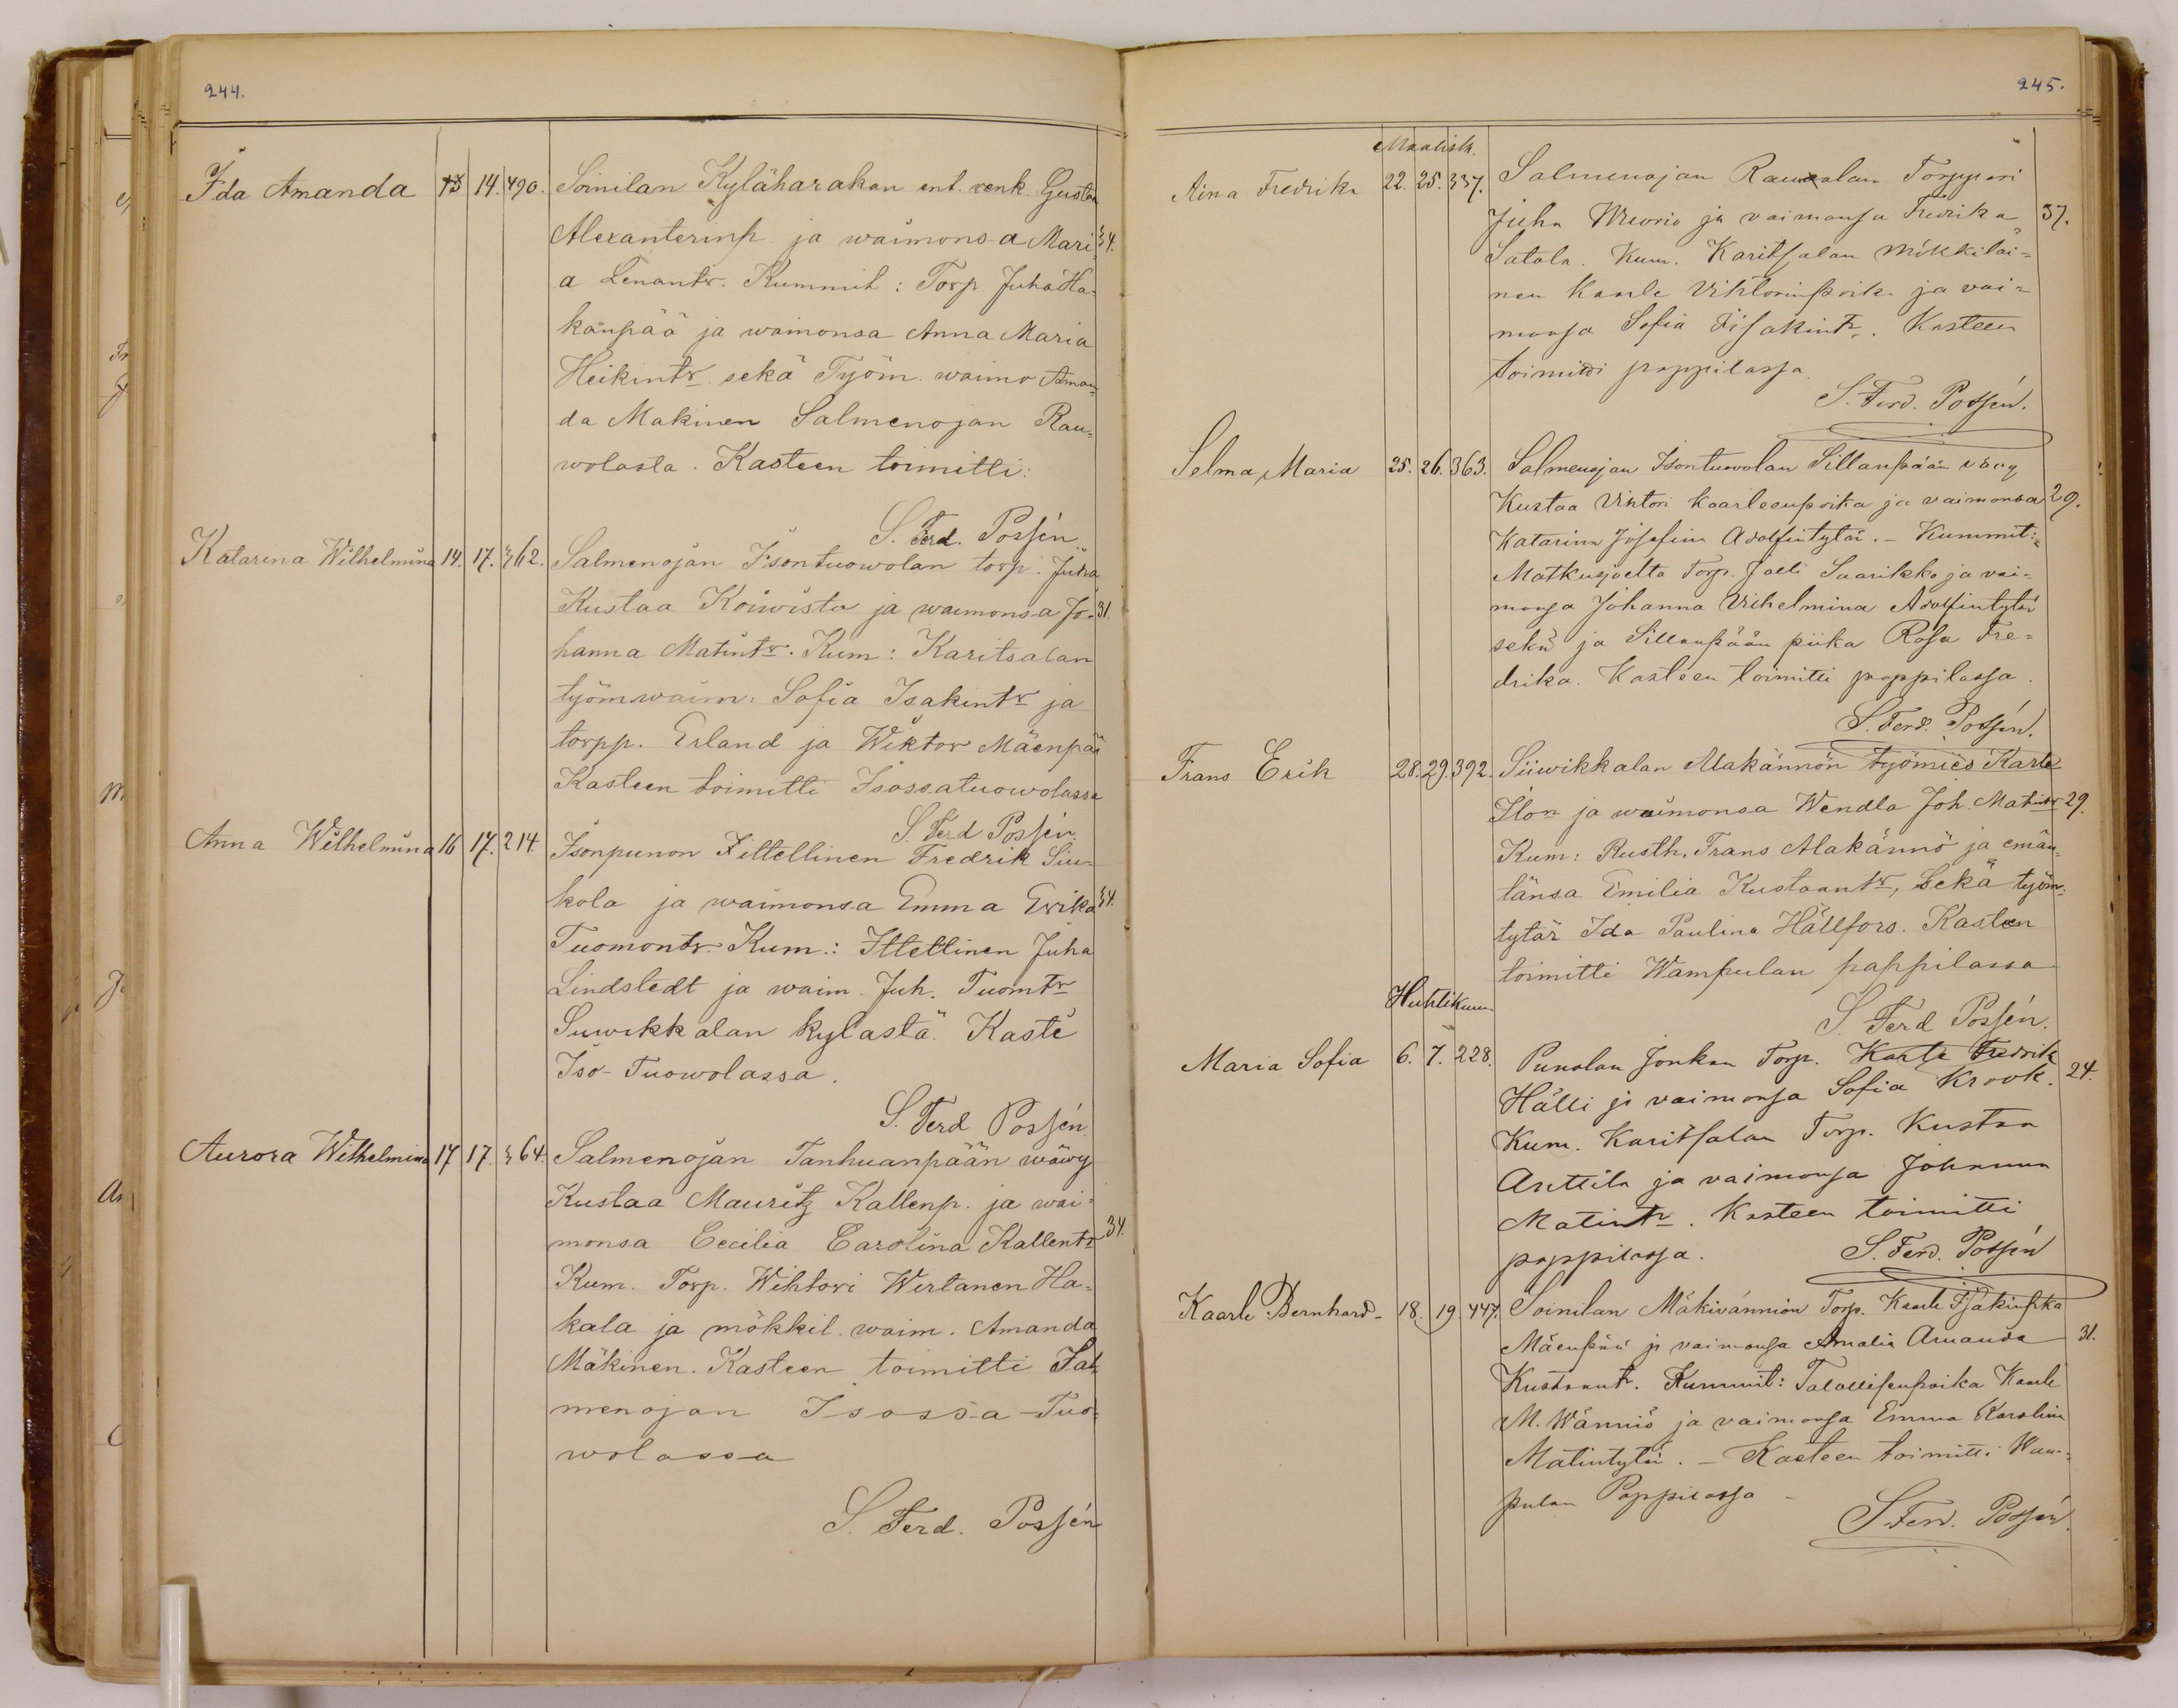 244.
Ida Amanda 13 14. 490. Soinilan Kyläharakan ent. renk Gustaa
Alexanterinp. ja waimonsa Mari= 34.
a Lenantr. Kummit: Torp. Juha Ha=
kanpää ja waimonsa Anna Maria
Heikintr. sekä Työm. waimo Aman=
da Makinen Salmenojan Rau=
wolasta. Kasteen toimitti:
S. Ferd. Possén
Katarina Wilhelmina 14. 17. 362. Salmenojan Isontuowolan torp. Juha
Kustaa Koiwisto ja waimonsa Jo= 31.
hanna Matintr. Kum: Karitsalan
työmwaim: Sofia Isakintr ja
torpp. Erland ja Wiktor Mäenpää
Kasteen toimitti Isossatuowolassa
S. Ferd Possén.
Anna Wilhelmina 16 17. 214. Isonpunon Itellinen Fredrik Siu=
kola ja waimonsa Emma Erika 34.
Tuomontr. Kum.: Ittellinen Juha
Lindstedt ja waim. Juh. Tuomtr
Suwikkalan kylästä. Kaste
Iso-Tuowolassa.
S. Ferd Possén.
Aurora Wilhelmina 17 17. 364. Salmenojan Tanhuanpään wäwy
Kustaa Mauritz Kallenp. ja wai=
monsa Cecilia Carolina Kallentr 34.
Kum. Torp. Wihtori Wirtanen Ha=
kala ja mökkil. waim. Amanda
Mäkinen. Kasteen toimitti Sal
menojan Isossa-Tuo=
wolassa
S. Ferd. Possén
245.
Maalisk.
Aina Fredrika 22. 25. 337. Salmenojan Rauwolan Torppari
Juha Wuorio ja vaimonsa Fredrika 37.
Satola. Kum. Karitsalan mökkiläi=
nen Kaarle Vihtorinpoika ja vai=
monsa Sofia Iisakintr. Kasteen
toimitti pappilassa.
S. Ferd. Possén.
Selma Maria 25. 26. 363. Salmenojan Isontuovolan Sillanpään vävy
Kustaa Vihtori Kaarleenpoika ja vaimonsa 29.
Katarina Josefina Adolfintytär. - Kummit:
Matkusjoelta Torp. Joeli Saarikko ja vai=
monsa Johanna Vilhelmina Adolfintytär
sekä ja Sillanpään piika Rosa Fre=
drika. Kasteen toimitti pappilassa.
S. Ferd. Possén.
Frans Erik 28. 29. 392. Siiwikkalan Alakännön työmies Karle
Ilon ja waimonsa Wendla Joh. Matintr 29.
Kum: Rusth. Frans Alakännö ja emän=
tänsa Emilia Kustaantr, sekä työm=
tytär Ida Paulina Hällfors. Kasteen
toimitti Wampulan pappilassa
S. Ferd Possén.
Huhtikuu
Maria Sofia 6. 7. 228. Punolan Jonkan Torp. Karle Fredrik
Hälli ja vaimonsa Sofia Krook. 24.
Kum. Karitsalan Torp. Kustaa
Anttila ja vaimonsa Johanna
Matintr. Kasteen toimitti
pappilassa. S. Ferd. Possén
Kaarle Bernhard- 18. 19. 447. Soinilan Mäkivännion Torp. Kaarle Isakinpka
Mäenpää ja vaimonsa Amalia Amanda 31.
Kustaantr. Kummit: Talollisenpoika Kaarle
M. Wänniö ja vaimonsa Emma Karolina
Matintytär. - Kasteen toimitti Wam=
pulan Pappilassa -
S. Ferd. Possén.